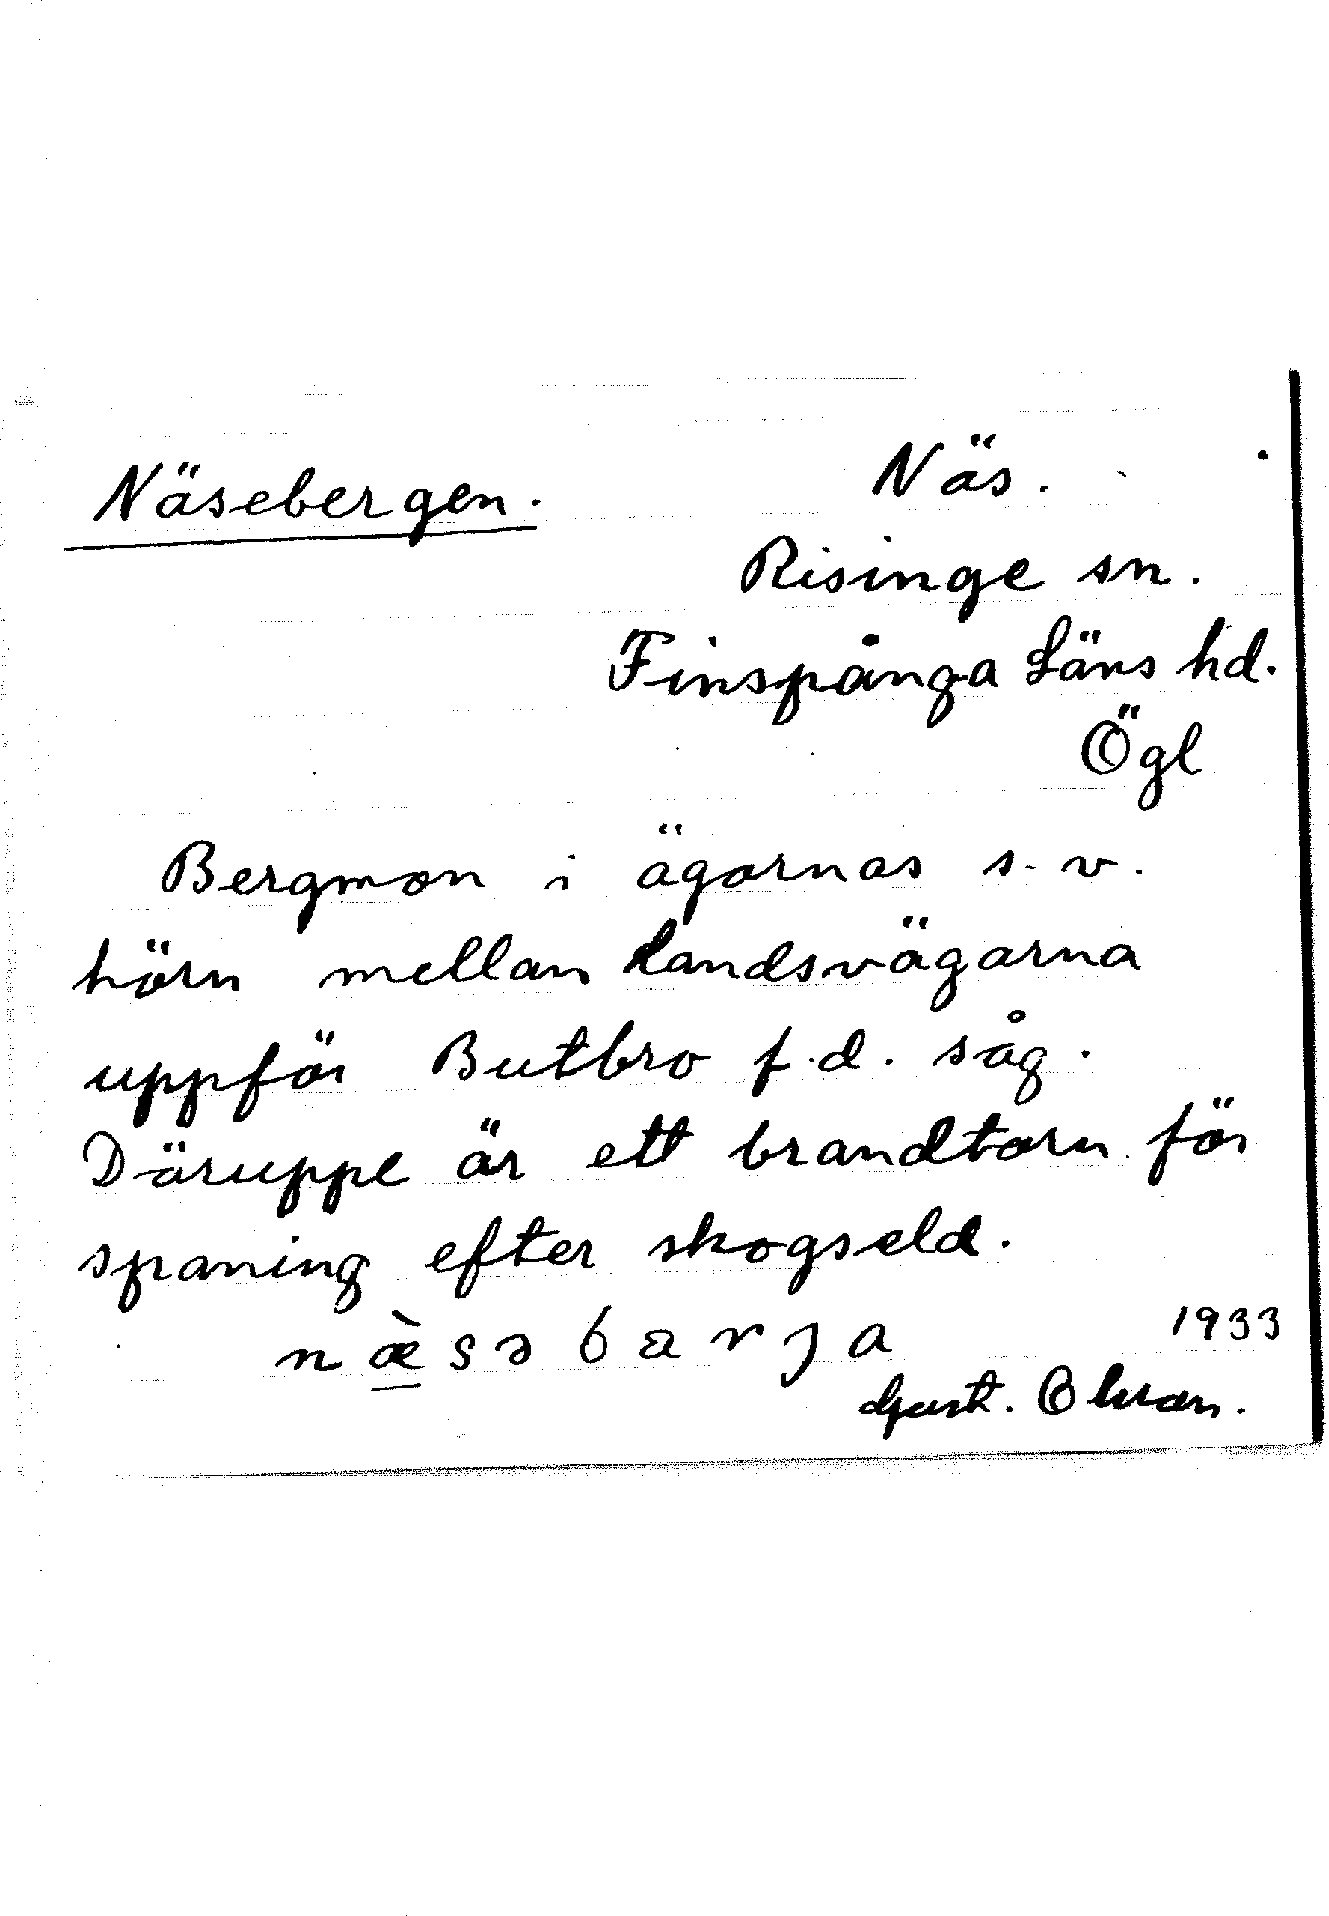 Näsebergen.
Näs.
Risinge sn.
Finspånga Läns hd.
Ögl
Bergmon i ägornas s.v.
hörn mellan landsvägarna
uppför Butbro f.d. såg.
Däruppe är ett brandtorn för
spaning efter skogseld.
næ̀səbarja
1933
Gust.